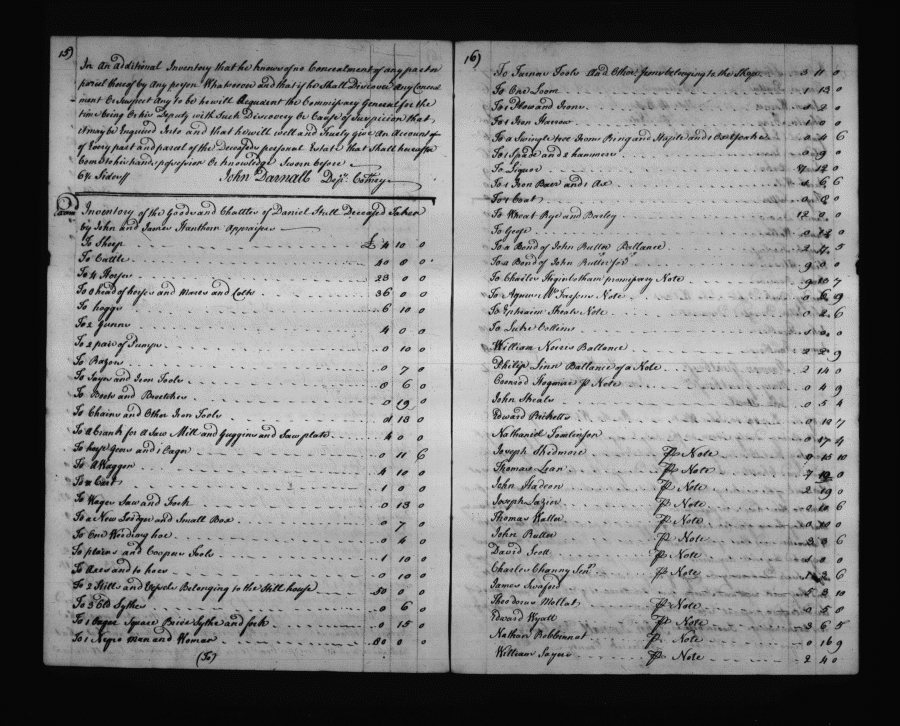 15)
In An additional Inventory that he knows of no Concealment of any part or
parcel thereof by Any person Whatsoever and that if he Shall Discover Any Conceal
ment Or Suspect Any to be he will Acquaint the Commissary General for the
time being Or his Deputy with Such Discovery Or Cause of Suspicion that
it may be Enquired Into and that he will well and Truly give An Account of
of Every part and parcel of the Deceaseds personal Estate that Shall hereafter
Come to his hands possession Or knowledge Sworn before
John Darnall Depy. Comry
Inventory of the Goods and Chattles of Daniel Hull Deceased Taken
by John and James Appraisers
To Sheep £ 4 10 0
To Cattle 40 8 0
To 4 Horses 23 0 0
To 8 head of horses and Mares and Colts 36 0 0
To hoggs 6 10 0
To 2 Gunns 4 0 0
To 2 pair of Pumps 0 10 0
To Razors 0 7 0
To and Iron Tools 8 6 0
To Boots and Breetches 0 19 0
To Chains and Other Iron Tools 13 0
To A Crank for A Saw Mill and Guggins and Saw plate 4 0 0
To horse Geers and 0 11 6
To A Waggon 4 10 0
To a Cart 1 0 0
To Saw and Fork 0 13 0
To a New and Small Box 0 7 0
To One Weeding hoe 0 4 0
To plains and Coopers Tools 1 10 0
To Axes and hoes 0 10 0
To 2 Stills and Vessels Belonging to the Still house 50 0 0
To 3 Old Sythes 0 6 0
To 1 Square Sythe and fork 0 15 0
To 1 Negro Man and Woman 80 0 0
(To)
16)
To Tools And Other Items belonging to the Shop 3 11 0
To One Loom 1 15 0
To 1 Plow and Irons 2 0
To 1 Iron Harrow 1 0 0
To a Swingle tree Irons Ring and Staple and 0 4 6
To 1 Spade and 2 hammers 0 9 0
To Liquor 12 0
To 1 Iron Barr and 1 Ax 6 6
To 1 Coat 0 8 0
To Wheat Rye and Barley 12 0 0
To Geese 0 12 0
To a Bond of John Rutter Ballance 2 5
To a Bond of John Rutter for 9 0 0
To Charles Higinbotham promissary Note 9 10 7
To Note 0 6 9
To Ephraim Skeals Note 0 2 6
To Luke Collins 0 0
William Norris Ballance 2 2 9
Philip Linn Ballance of a Note 2 14 0
Conrod Hogmire P Note 0 4 9
John Skeals 0 5 4
Edward Ricketts 0 10 7
Nathaniel Tomlinson 0 17 4
Joseph Skidmore P Note 0 15 10
Thomas Lean P Note 7 12 0
John P Note 2 19 0
Joseph Lazier P Note 2 10 6
Thomas Waller P Note 0 10 0
John Rutter P Note 3 0 6
David Scott P Note 0
Charles Channy Senr. P Note 1 2 6
James Swaford 5 3 10
Theodorus Mollat P Note 0 5 8
Edward Wyatt P Note 3 6 5
Nathan Robbinnot P Note 0 16 9
William Sayers P Note 2 4 0